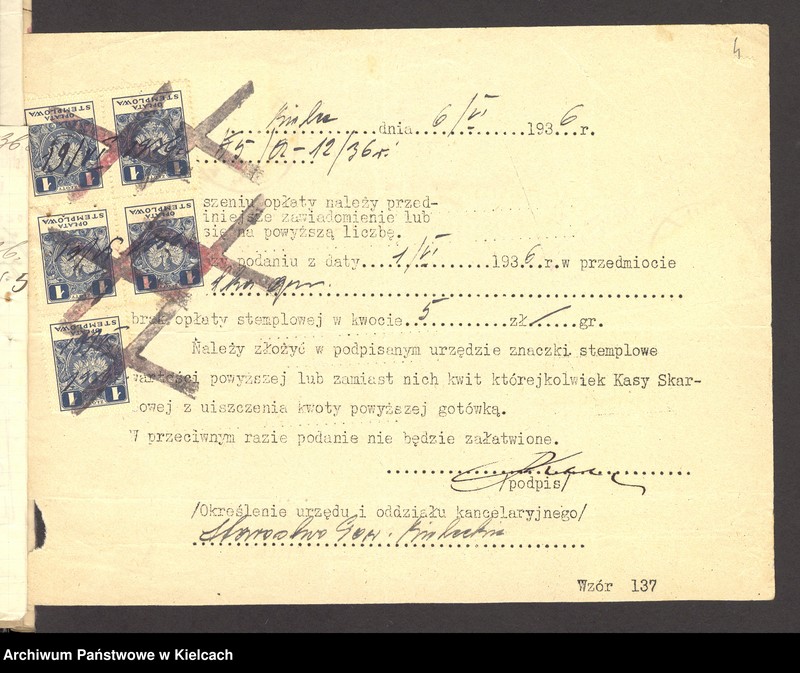 4
Kielce dnia 6/VI 1936 r.
12/36 r.
szeniu opłaty należy przed-
iniejsze zawiadomienie lub
się na powyższą liczbę.
podaniu z daty 1/VI 1936 r. w przedmiocie
brak opłaty stemplowej w kwocie 5 zł / gr.
Należy złożyć w podpisanym urzędzie znaczki stemplowe
wartości powyższej lub zamiast nich kwit którejkolwiek Kasy Skar-
bowej z uiszczenia kwoty powyższej gotówką.
W przeciwnym razie podanie nie będzie załatwione.
/podpis/
/Określenie urzędu i oddziału kancelaryjnego/
Starostwo Pow. Kieleckie
Wzór 137
OPŁATA STEMPLOWA
1 ZŁOTY 1
OPŁATA STEMPLOWA
1 1
OPŁATA STEMPLOWA
1 1
OPŁATA STEMPLOWA
1 1
OPŁATA STEMPLOWA
1 1
Archiwum Państwowe w Kielcach